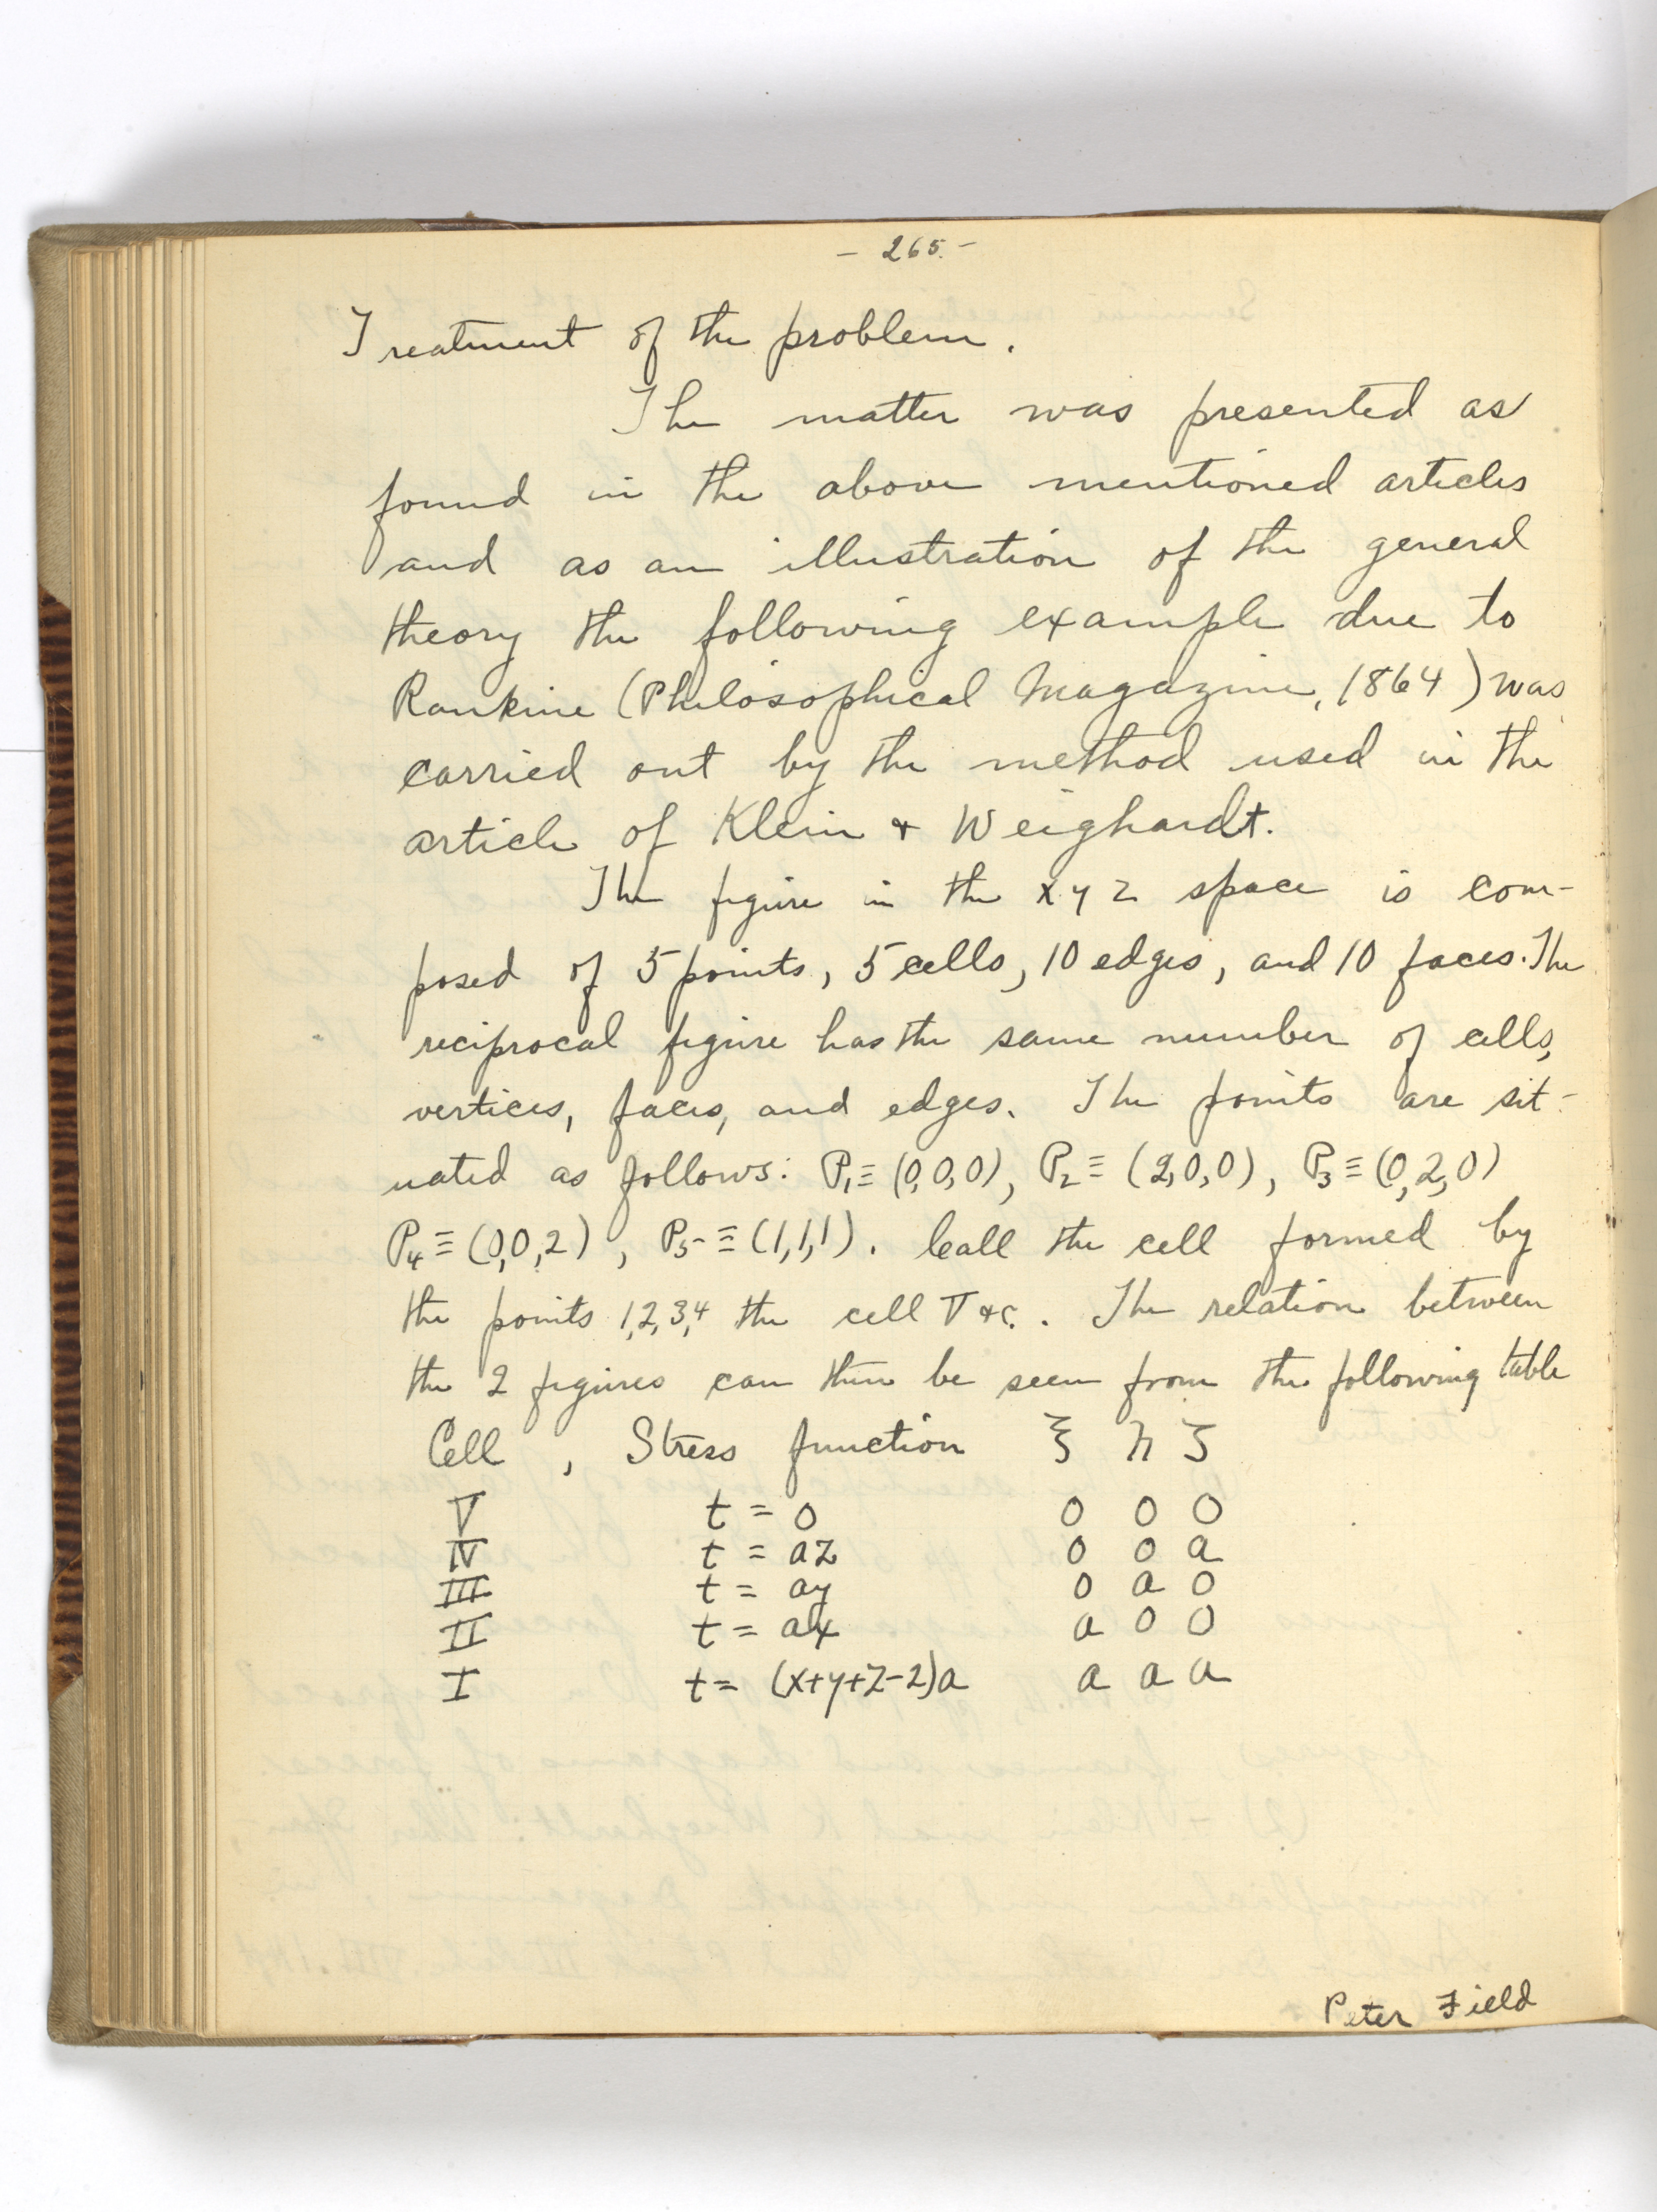 - 265. -
Treatment of the problem.
The matter was presented as
found in the above mentioned articles
and as an illustration of the general
theory the following example due to
Rankine (Philosophical Magazine, 1864) was
carried out by the method used in the
article of Klein & Weighardt.
The figure in the x y z space is com-
posed of 5 points, 5 cells, 10 edges, and 10 faces. The
reciprocal figure has the same number of cells,
vertices, faces, and edges. The points are sit-
uated as follows: P₁ ≡ (0,0,0), P₂ ≡ (2,0,0), P₃ ≡ (0,2,0)
P₄ ≡ (0,0,2), P₅ ≡ (1,1,1). Call the cell formed by
the points 1,2,3,4 the cell V &c. The relation between
the 2 figures can then be seen from the following table
Cell, Stress function ξ η ζ
V t = 0 0 0 0
IV t = az 0 0 a
III t = ay 0 a 0
II t = ax a 0 0
I t = (x+y+z-2)a a a a
Peter Field